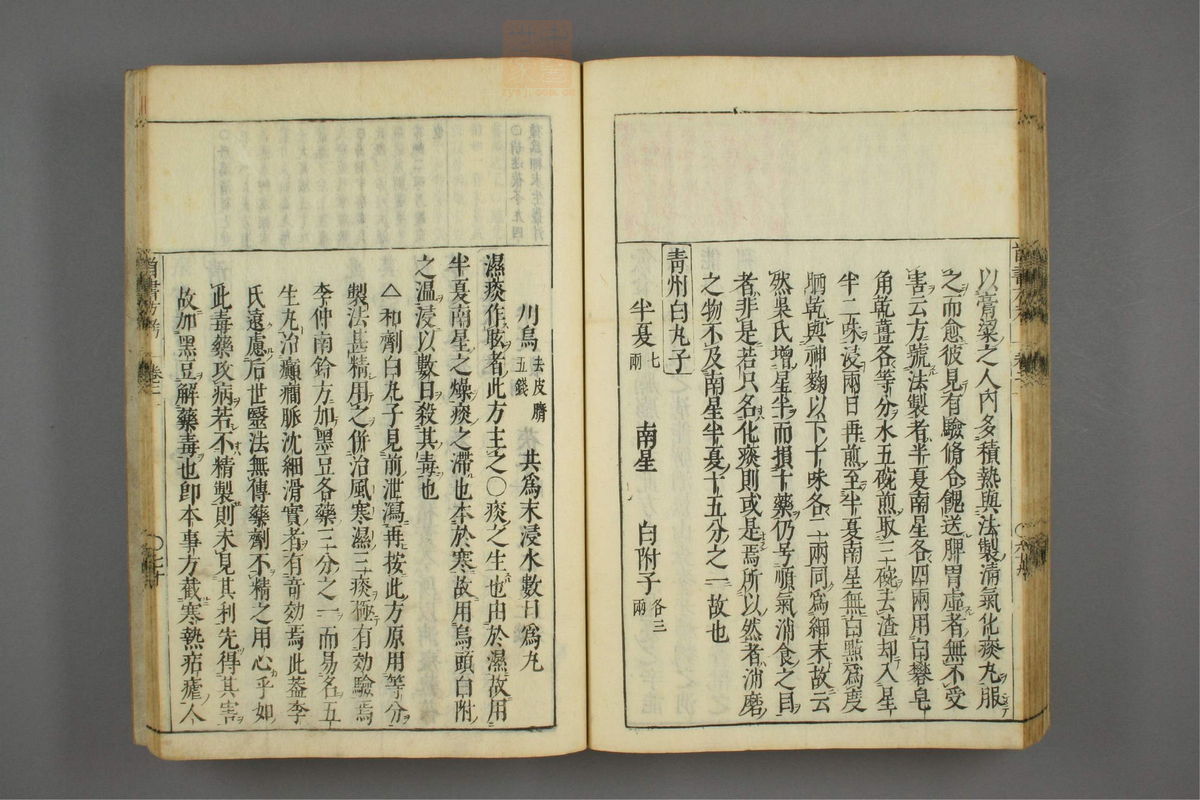 以膏粱之人內多積熱與法製清氣化痰丸服
之而愈彼見有驗脩合餽送脾胃虛者無不受
害云方號法製者半夏南星各四兩用白礬皂
角乾薑各等分水五碗煎取三碗去渣却入星
半二味浸兩日再煎至半夏南星無白點爲度
晒乾與神麴以下十味各二兩同爲細末故云
然吳氏增星半而損十藥仍号順氣消食之目
者非是若只名化痰則或是焉所以然者消磨
之物不及南星半夏十五分之一故也
青州白丸子
半夏七兩 南星 白附子各三兩
川烏去皮臍五錢 共爲末浸水數日爲丸
濕痰作眩者此方主之○痰之生也由於濕故用
半夏南星之燥痰之滯也本於寒故用烏頭白附
之温浸以數日殺其毒也
△和劑白丸子見前泄瀉再按此方原用等分
製法甚精用之併治風寒濕三痰極有効驗焉
李仲南鈐方加黑豆各藥三分之一而易名五
生丸治癲癇脈沈細滑實者有竒効焉此葢李
氏遠慮后世醫法無傳藥劑不精之用心乎如
此毒藥攻病若不精製則未見其利先得其害
故加黑豆解藥毒也卽本事方截寒熱痁瘧人
卷三
○七十